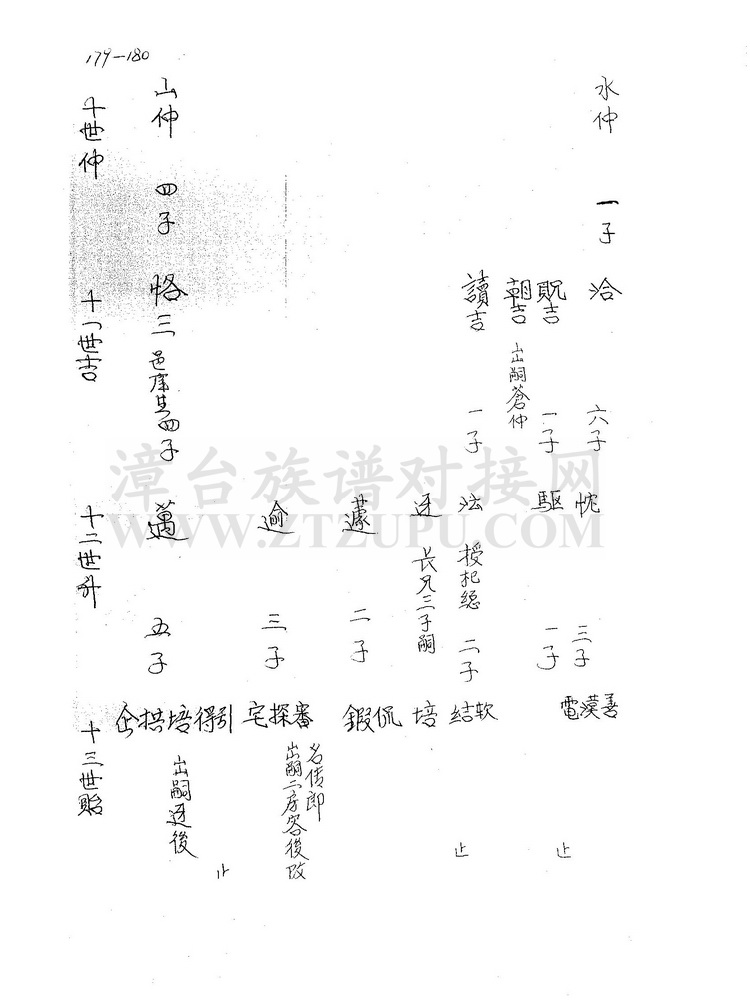 179—180
水仲 一子 洽 六子 忱 三子 善
漠
貺吉 一子 驅 一子 電
止
朝吉 出嗣蒼仲
讀吉 一子 法 授把總 二子 软
結
止
迓 長兄三子嗣 培
蘧 二子 侃
鍜
逾 三子 審 名传郎
出嗣二房容後改
探
宅
山仲 四子 恪三 邑庠生四子 邁 五子 引
止
得
培 出嗣迓後
拱
企
十世仲 十一世吉 十二世升 十三世貽
漳台族谱对接网
WWW.ZTZUPU.COM